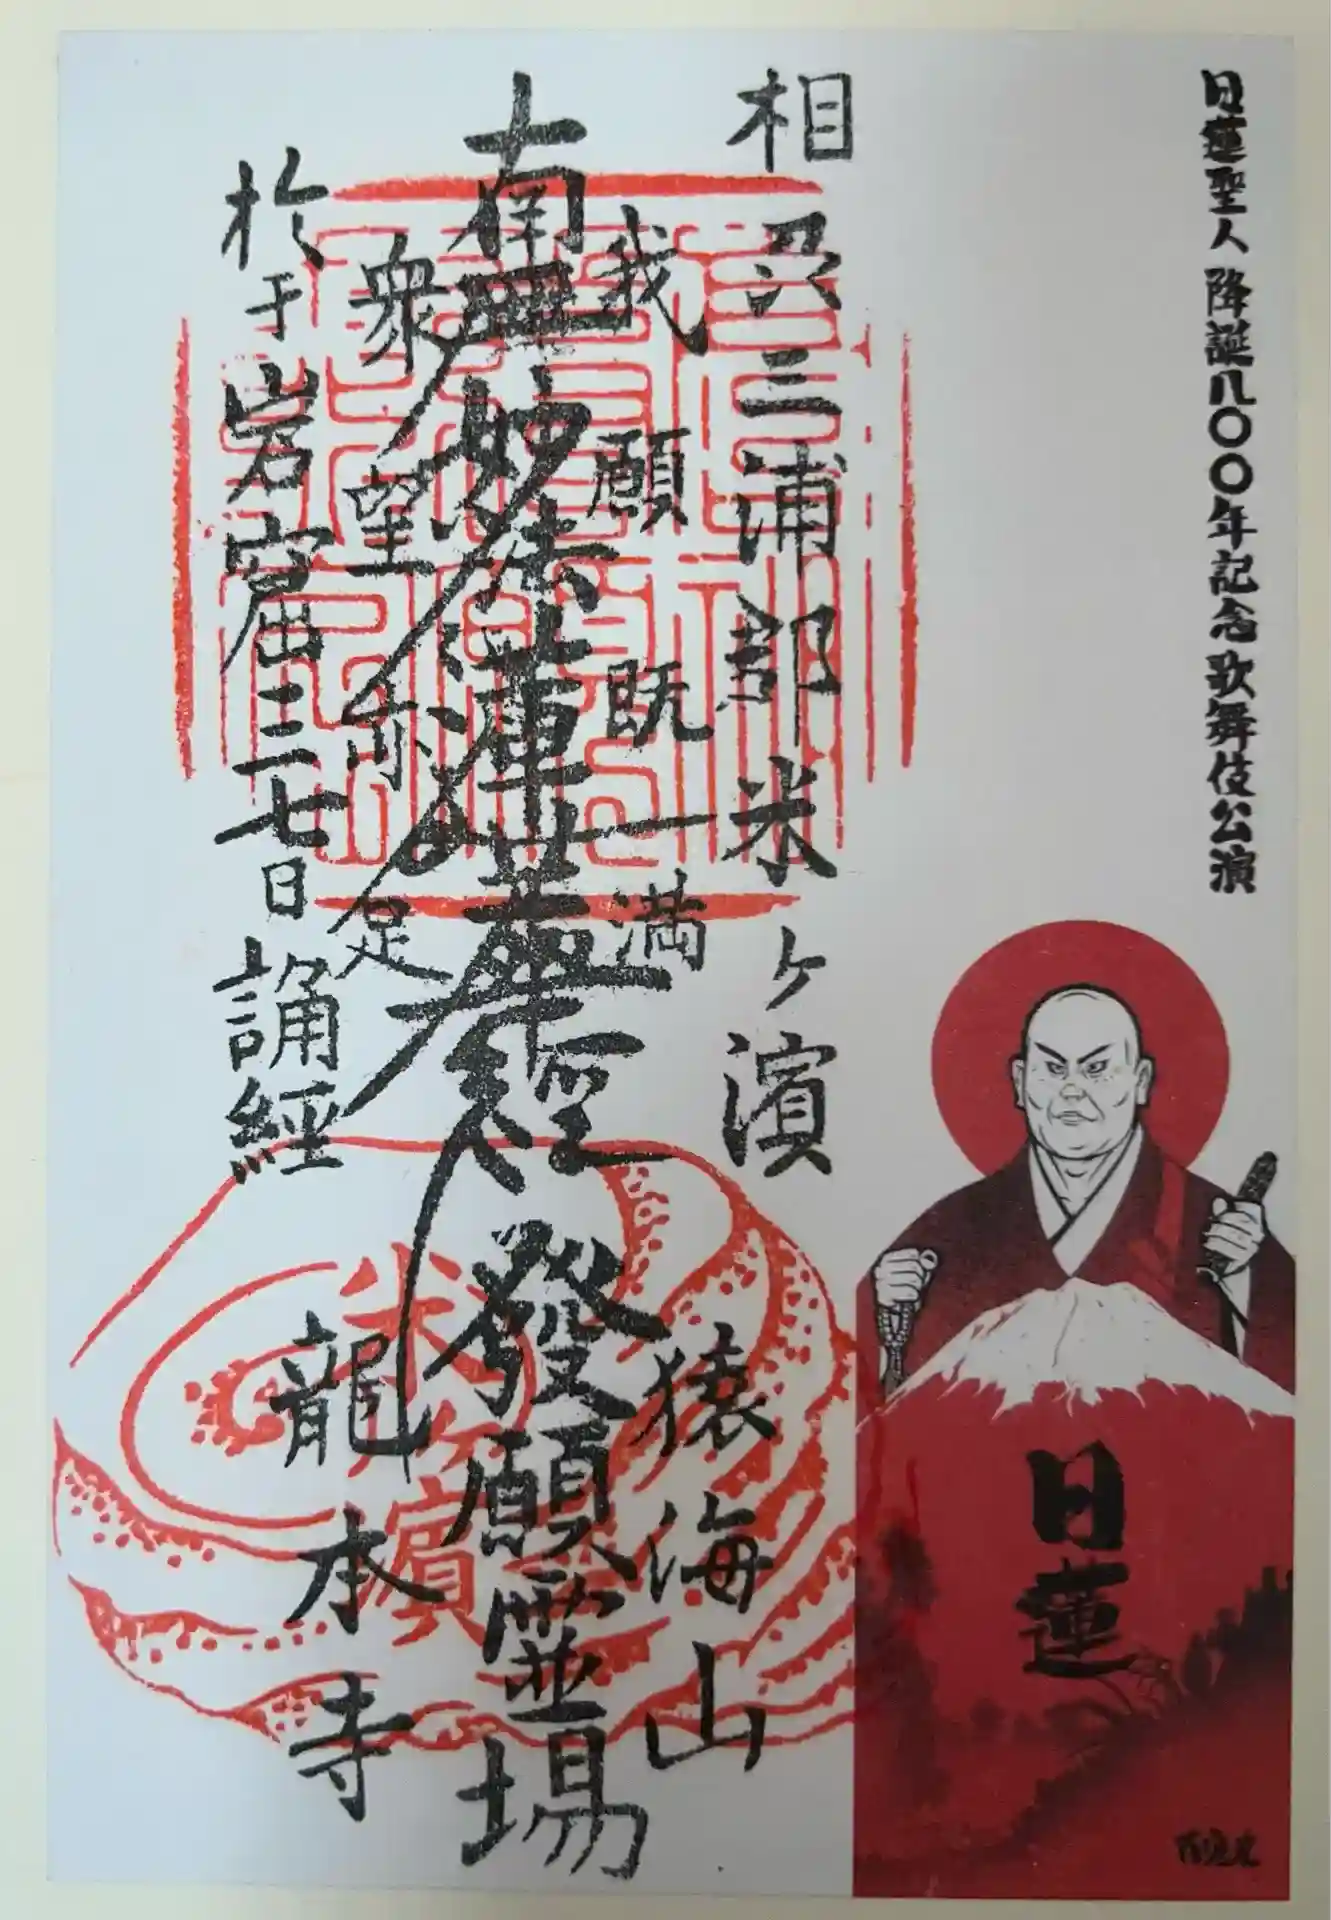 日蓮聖人降誕八〇〇年記念歌舞伎公演
相刕三浦郡米ヶ濱
我願既満
南無妙法蓮華経
發願霊場
衆望亦足
於于岩窟三七日誦経
猿海山
龍本寺
米ヶ濱
日蓮